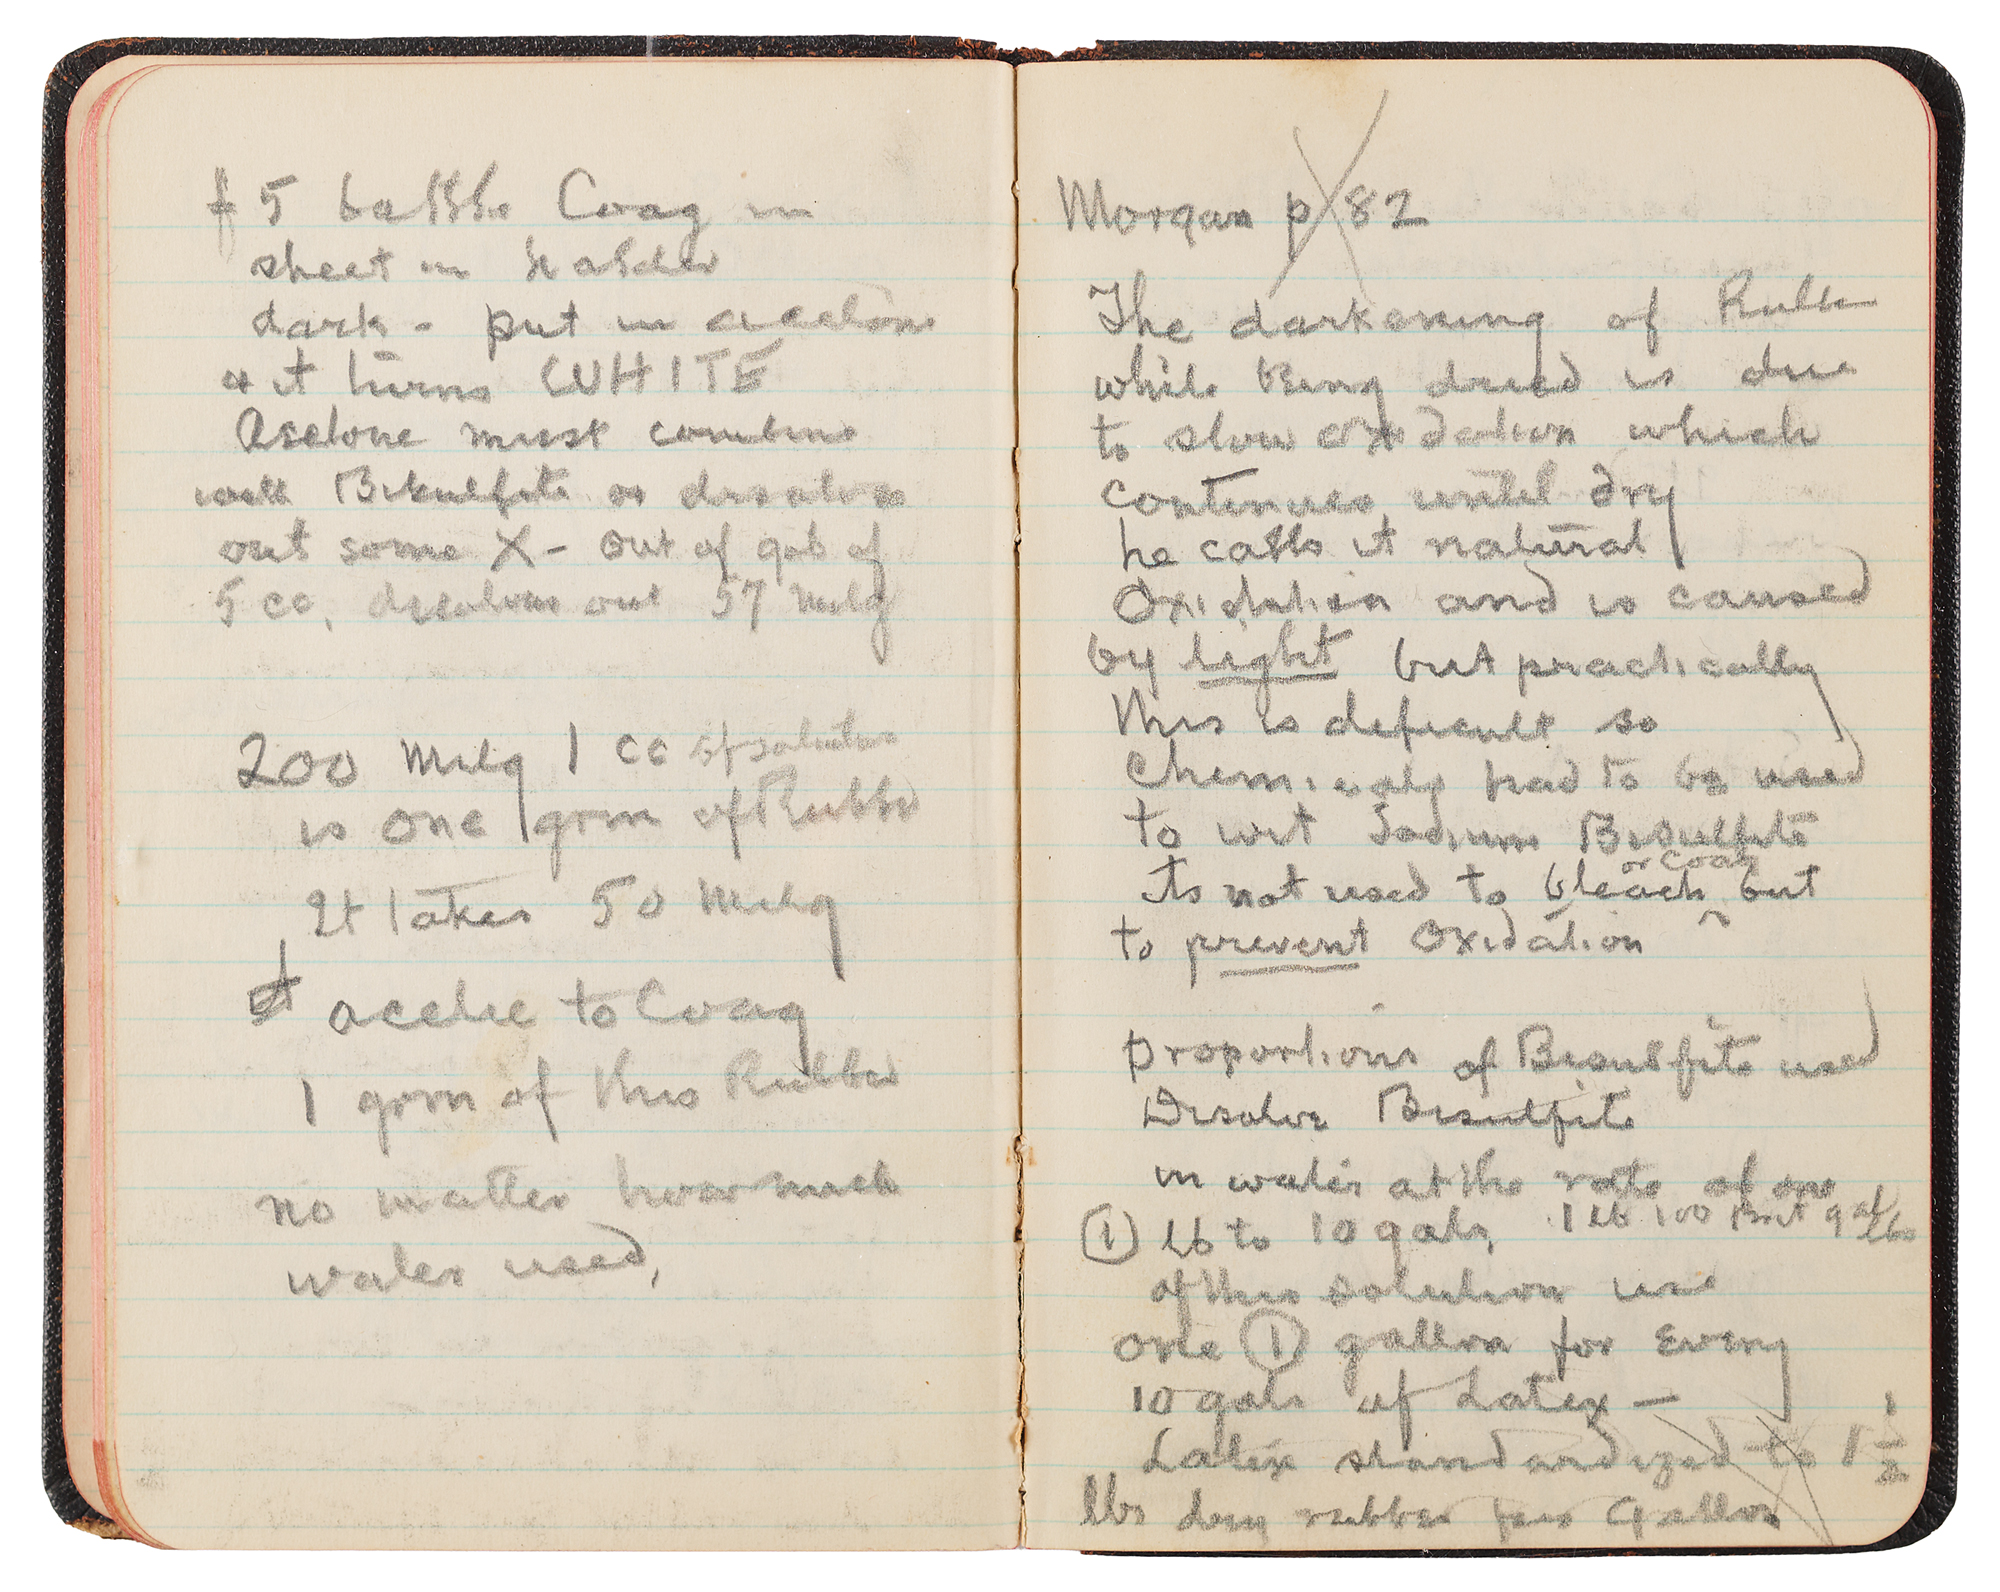 # 5 bottle Coag in
sheet in holder
dark - put in acetone
& it turns WHITE
Acetone must combine
with Bisulfite or disolves
out some X - out of gob of
5 cc, disolves out 57 milg
200 Milg 1 cc of solution
is one grm of Rubber
It takes 50 Milg
acetic to Coag
1 grm of this Rubber
no matter how much
water used,
Morgan p 82
The darkening of Rubber
while being dried is due
to slow oxidation which
continues until dry
he calls it natural
Oxidation and is caused
by light but practically
this is deficult so
Chemicaly had to be used
to wit Sodium Bisulfite
its not used to bleach or Coag but
to prevent Oxidation
proportions of Bisulfite used
Disolve Bisulfite
in water at the rate of one
(1) lb to 10 gals, 1 lb 100 gal lbs
of this solution use
one (1) gallon for Every
10 gals of Latex —
Latex standardized to 1 1/2
lbs dry rubber per Gallon